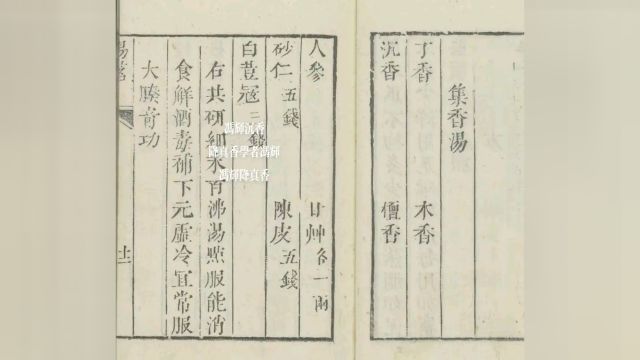 集香湯
丁香 木香
沉香 檀香
人參 甘艸各一兩
砂仁五錢 陳皮五錢
白荳寇三錢
右共研細末百沸湯㸃服能消
食解酒毒補下元虛冷宜常服
大臻奇功
馮輝沉香
降真香學者馮輝
馮輝降真香